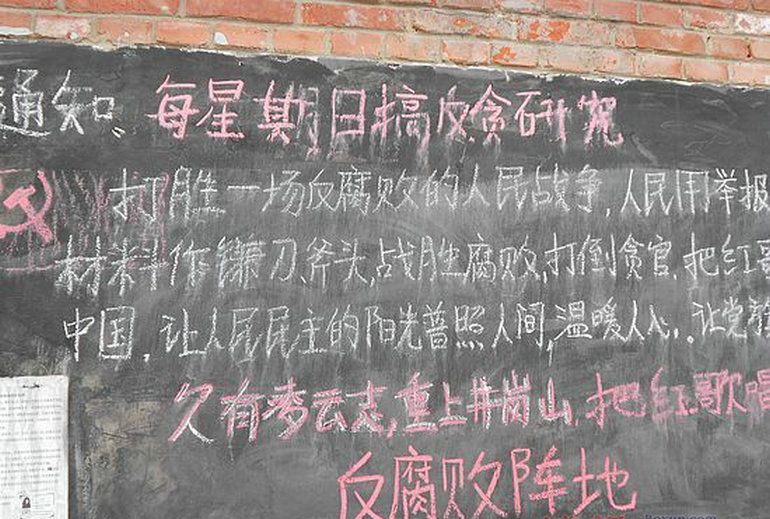 通知 每星期日搞反贪研究
打胜一场反腐败的人民战争,人民用举报
材料作镰刀、斧头,战胜腐败,打倒贪官,把红歌
中国,让人民民主的阳光普照人间,温暖人心,让党
久有凌云志,重上井岗山,把红歌唱
反腐败阵地